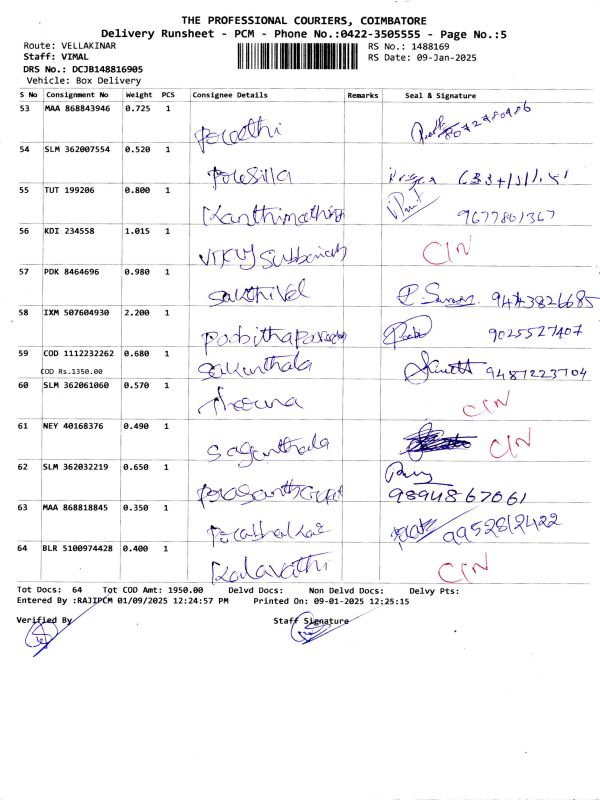 THE PROFESSIONAL COURIERS, COIMBATORE
Delivery Runsheet - PCM - Phone No.:0422-3505555 - Page No.:5
Route: VELLAKINAR
RS No.: 1488169
Staff: VIMAL
RS Date: 09-Jan-2025
DRS No.: DCJB148816905
Vehicle: Box Delivery
S No Consignment No Weight PCS Consignee Details Remarks Seal & Signature
53 MAA 868843946 0.725 1
54 SLM 362007554 0.520 1
55 TUT 199206 0.800 1 Kanthimathi 9677801367
56 KDI 234558 1.015 1 CIN
57 PDK 8464696 0.980 1 Sakthivel 9443826685
58 IXM 507604930 2.200 1 9025527407
59 COD 1112232262 0.680 1 Sakunthala 9487223704
COD Rs.1350.00
60 SLM 362061060 0.570 1 CIN
61 NEY 40168376 0.490 1 CIN
62 SLM 362032219 0.650 1 9894867061
63 MAA 868818845 0.350 1 9952812422
64 BLR 5100974428 0.400 1 Kalavathi CIN
Tot Docs: 64 Tot COD Amt: 1950.00 Delvd Docs: Non Delvd Docs: Delvy Pts:
Entered By :RAJIPCM 01/09/2025 12:24:57 PM Printed On: 09-01-2025 12:25:15
Verified By Staff Signature